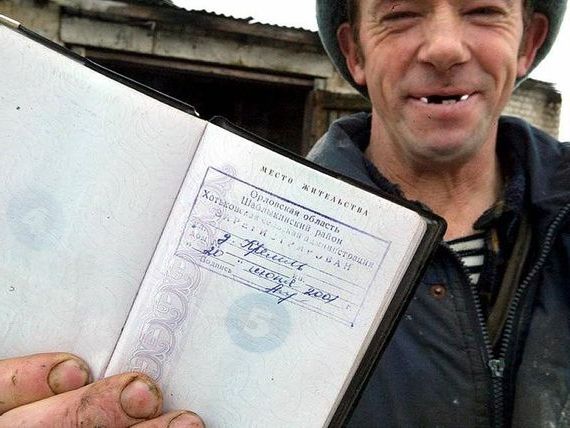 МЕСТО ЖИТЕЛЬСТВА
Орловская область
Шаблыкинский район
Хотьковская сельская администрация
ЗАРЕГИСТРИРОВАН
д. Кремль
" 20 " июня 2001 г.
Подпись
5